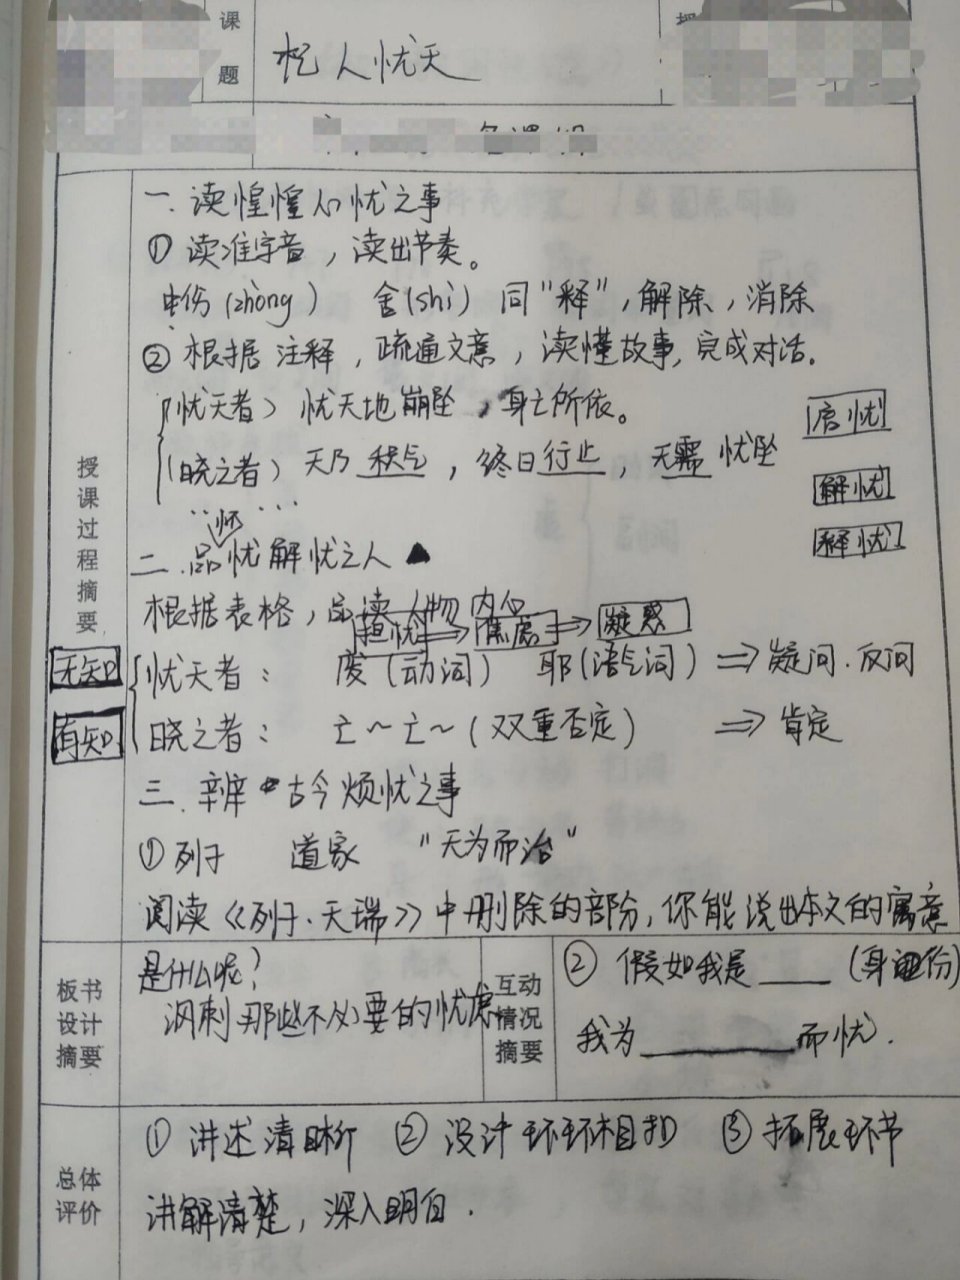 课题
杞人忧天
授课过程摘要
一.读惶惶人忧之事
①读准字音，读出节奏。
中伤(zhòng) 舍(shì) 同"释"，解除，消除
②根据注释，疏通文意，读懂故事,完成对话.
(忧天者) 忧天地崩坠，身亡所依。
启忧
(晓之者) 天乃积气，终日行止，无需忧坠
解忧
释忧
二.品忧解忧之人
根据表格，品读人物内心
担忧⇒焦虑⇒凝惑
无知
忧天者： 废(动词) 耶(语气词) ⇒疑问.反问
有知
晓之者： 亡～亡～(双重否定) ⇒肯定
三.辨古今烦忧之事
①列子 道家 "无为而治"
阅读《列子·天瑞》中删除的部分,你能说出本文的寓意
是什么呢?
讽刺那些不必要的忧虑
板书设计摘要
互动情况摘要
②假如我是____(身份)
我为________而忧.
总体评价
①讲述清晰 ②设计环环相扣 ③拓展环节
讲解清楚，深入明白.